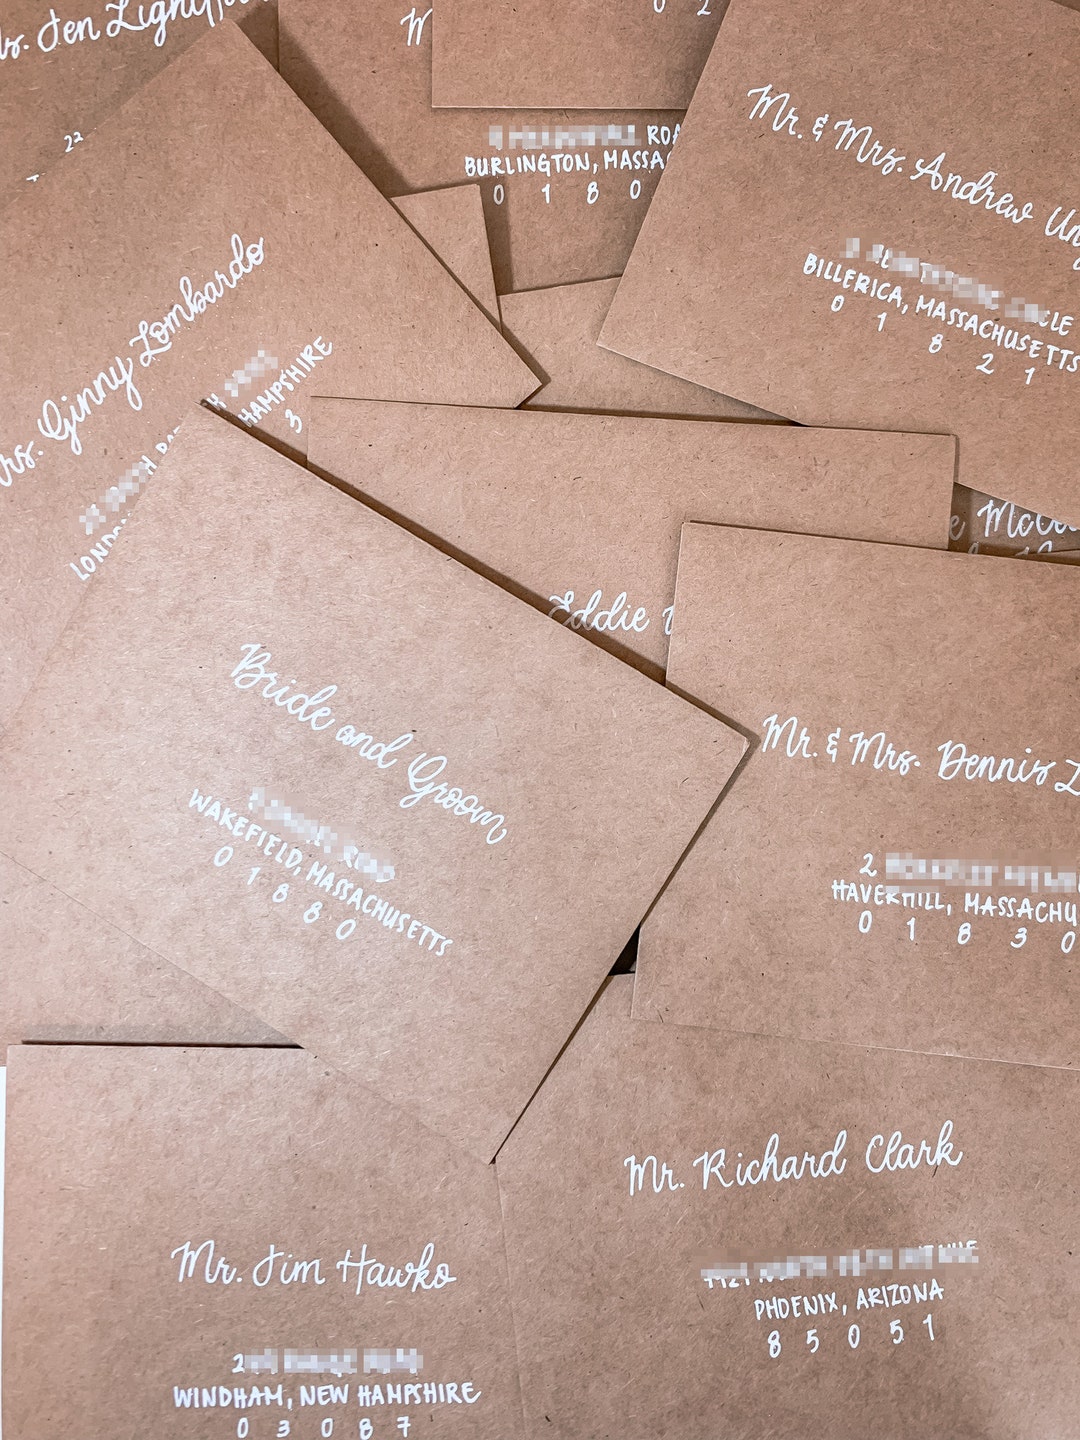 Jen
22
ROA
BURLINGTON, MASSA
0 1 8 0
Mr. & Mrs. Andrew Un
CLE
BILLERICA, MASSACHUSETTS
0 1 8 2 1
rs. Ginny Lombardo
HAMPSHIRE
3
Eddie
Bride and Groom
ROAD
WAKEFIELD, MASSACHUSETTS
0 1 8 8 0
Mr. & Mrs. Dennis L
2
HAVERHILL, MASSACHU
0 1 8 3 0
Mr. Richard Clark
PHOENIX, ARIZONA
8 5 0 5 1
Mr. Jim Hawko
2
WINDHAM, NEW HAMPSHIRE
0 3 0 8 7